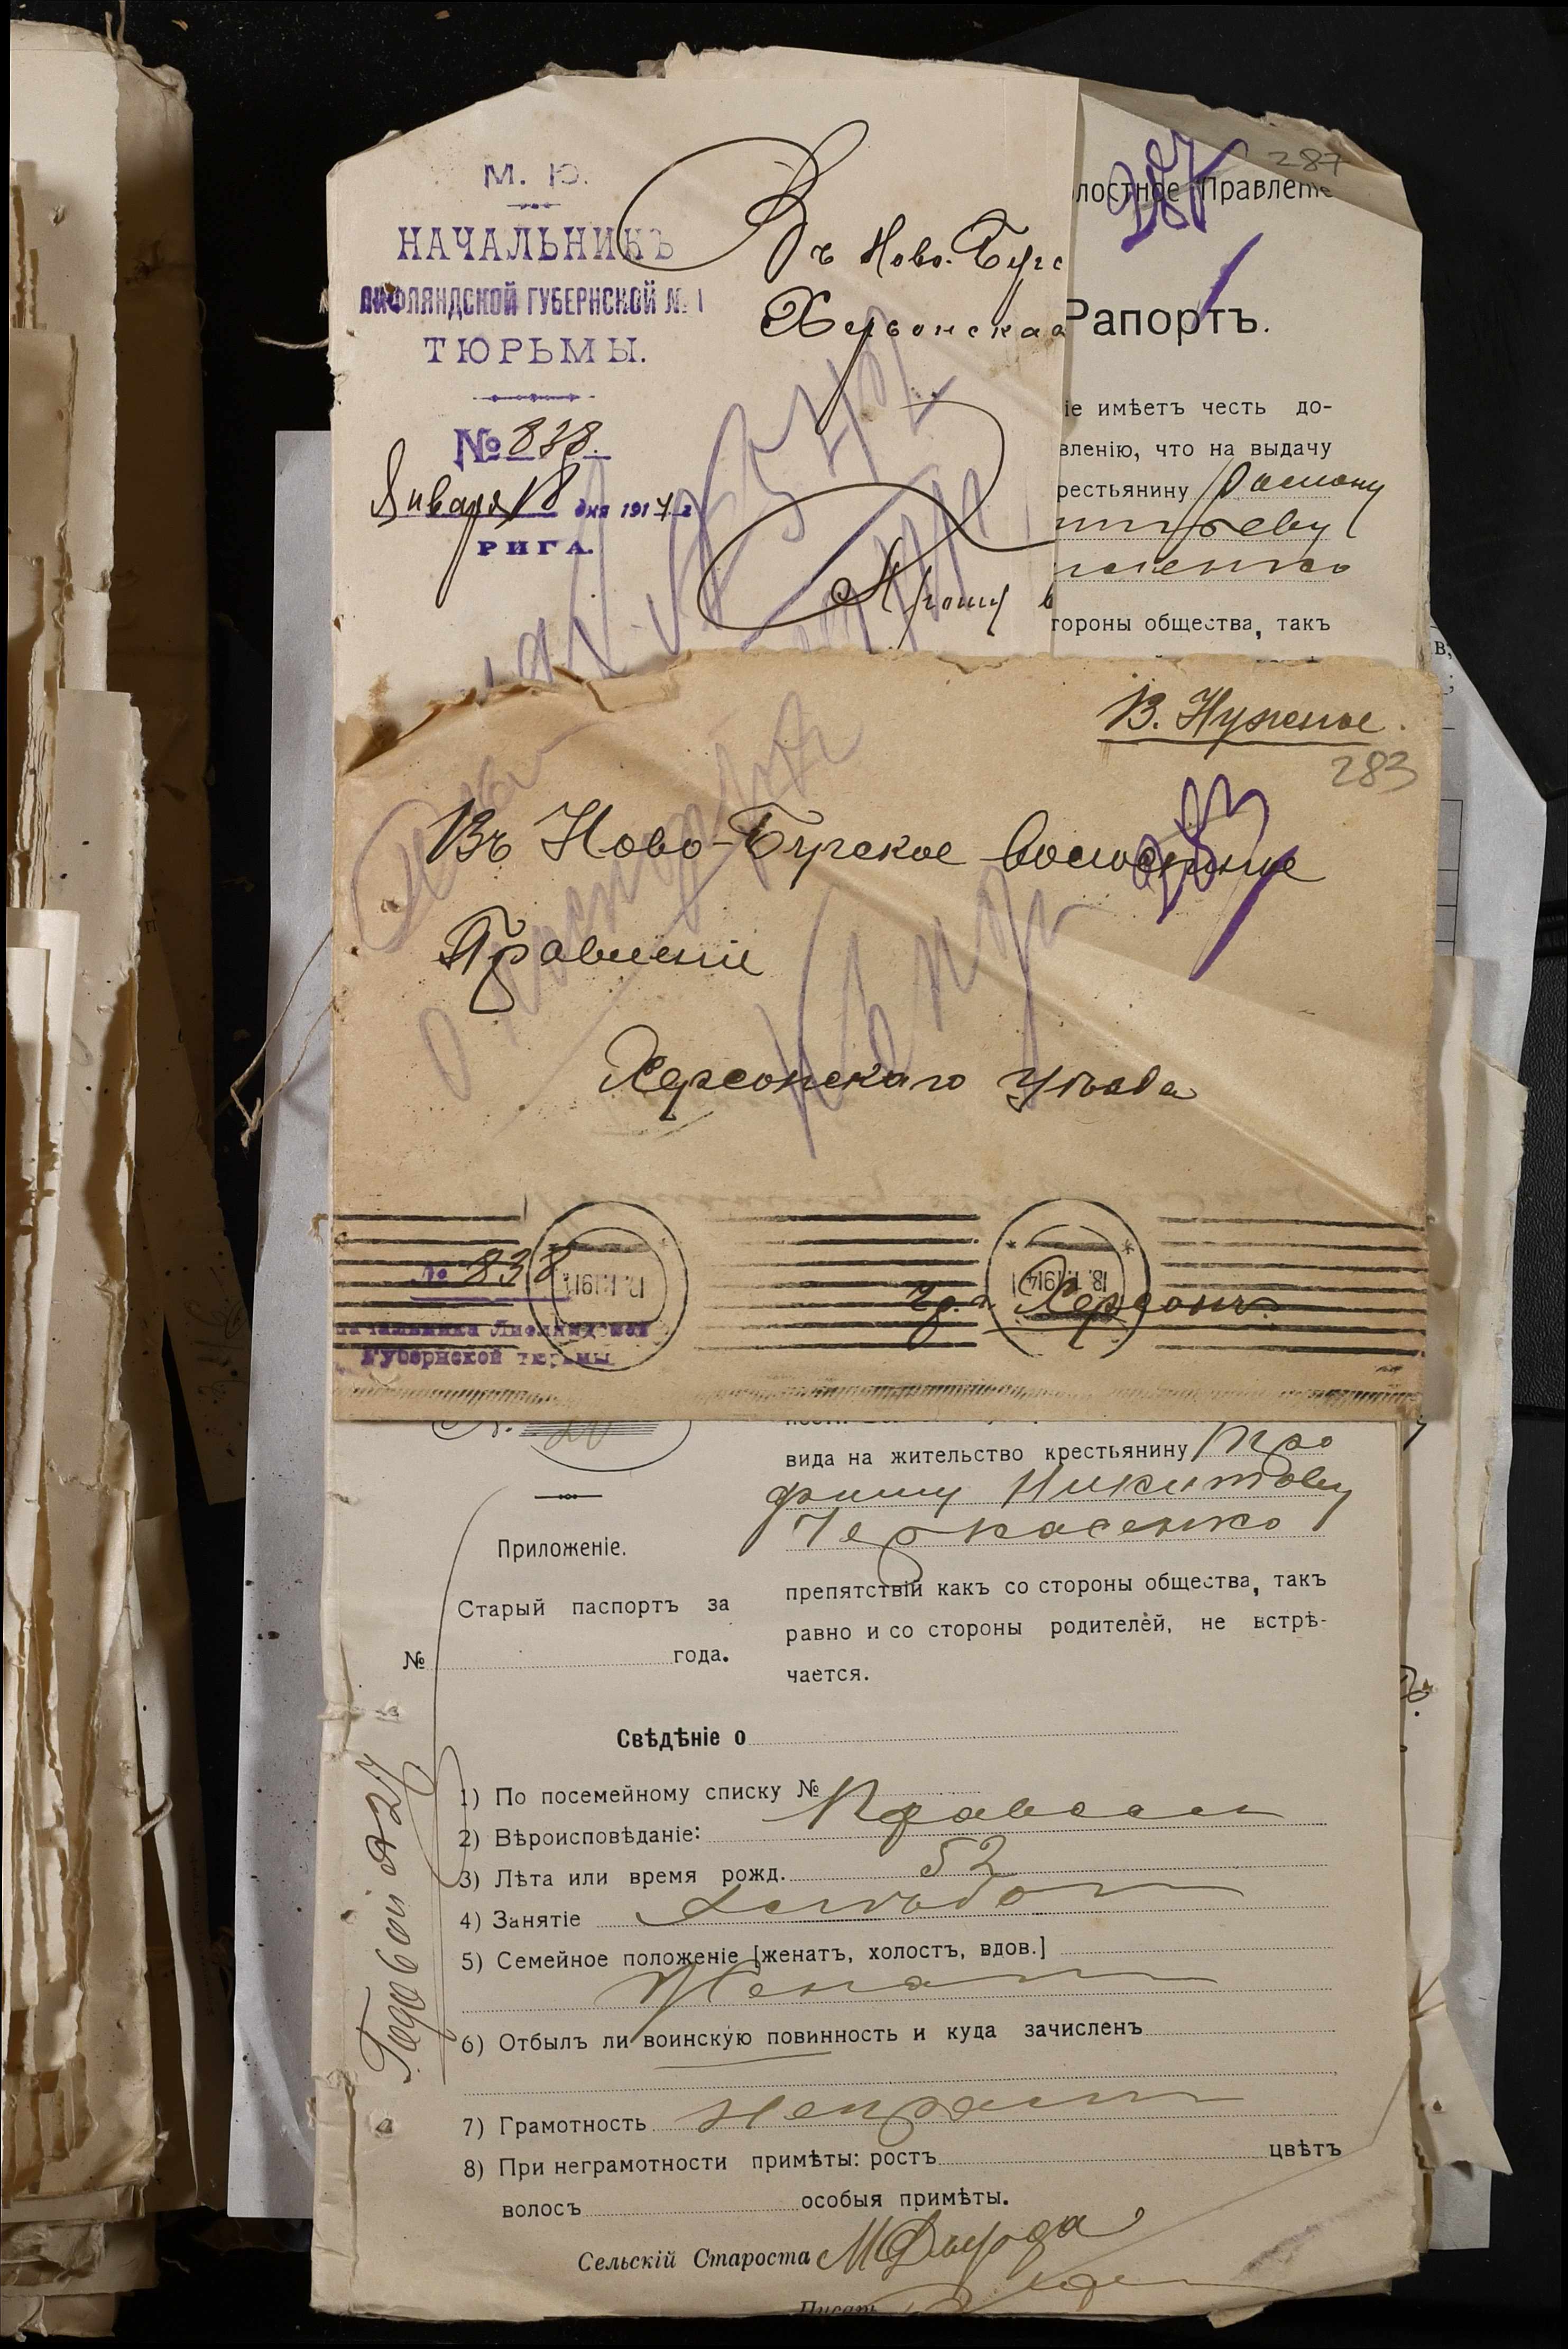 М. Ю.
НАЧАЛЬНИКЪ
ЛИФЛЯНДСКОЙ ГУБЕРНСКОЙ № 1
ТЮРЬМЫ.
№ 838.
Января 18 дня 1917 г
РИГА.
Въ Ново-Бугс
Херсонская
Прошу в
287
287
лостное Правлені
Рапортъ.
іе имѣетъ честь до-
вленію, что на выдачу
рестьянину
тороны общества, такъ
В. Нужное.
283
283
Въ Ново-Бугское волостное
Правленіе
Херсонскаго Уѣзда
№ 838
начальника Лифляндской
Губернской тюрьмы
Чр. г. Херсонъ.
вида на жительство крестьянину Тро
фиму Никитову
Черкасенко
Приложеніе.
Старый паспортъ за
№ года.
препятствій какъ со стороны общества, такъ
равно и со стороны родителей, не встрѣ-
чается.
Свѣдѣніе о
1) По посемейному списку №
2) Вѣроисповѣданіе: Правосл
3) Лѣта или время рожд. 52
4) Занятіе Хлѣбоп
5) Семейное положеніе [женатъ, холостъ, вдов.]
Женат
6) Отбылъ ли воинскую повинность и куда зачисленъ
7) Грамотность Неграм
8) При неграмотности примѣты: ростъ цвѣтъ
волосъ особыя примѣты.
Сельскій Староста
Писарь